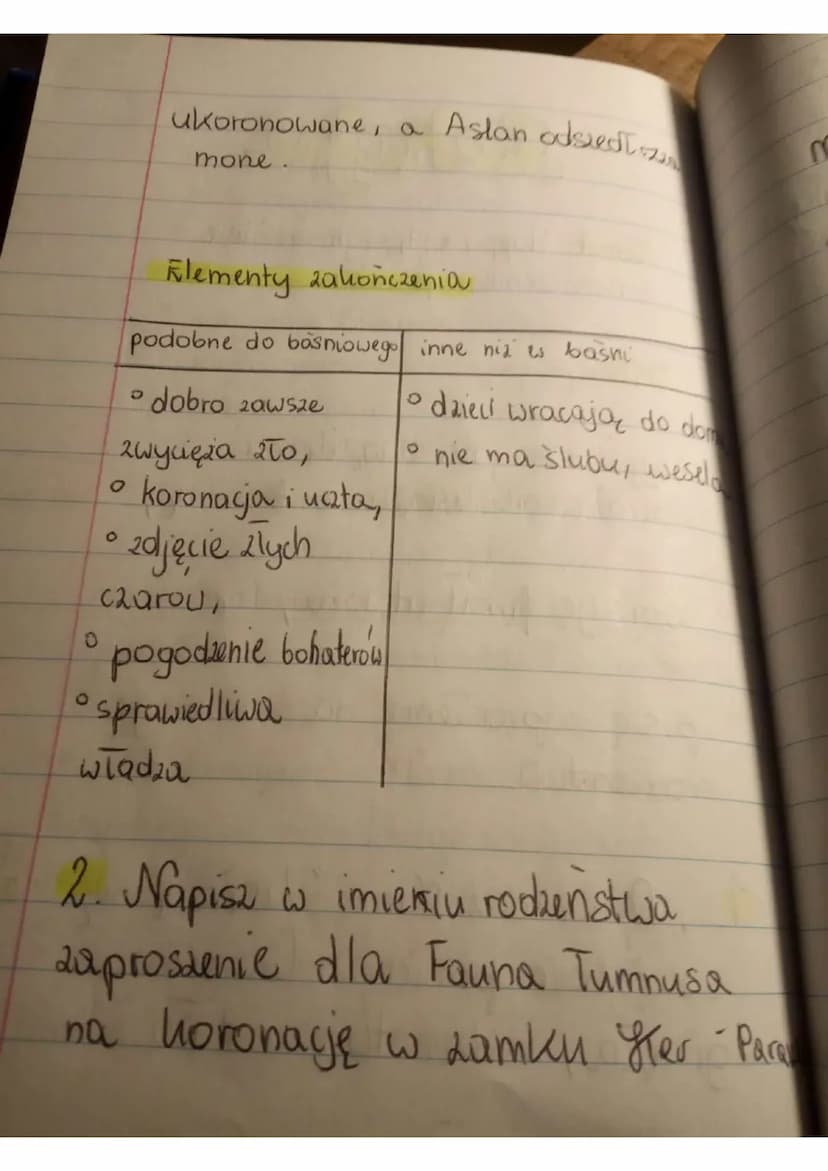 ukoronowane, a Aslan odszedł
mone.
Elementy zakończenia
podobne do baśniowego | inne niż w baśni
° dobro zawsze
zwycięża zło,
° koronacja i uczta,
° zdjęcie złych
czarów,
° pogodzenie bohaterów
° sprawiedliwa
władza
° dzieci wracają do dom
° nie ma ślubu, wesela
2. Napisz w imieniu rodzeństwa
zaproszenie dla Fauna Tumnusa
na koronację w zamku Ker - Para